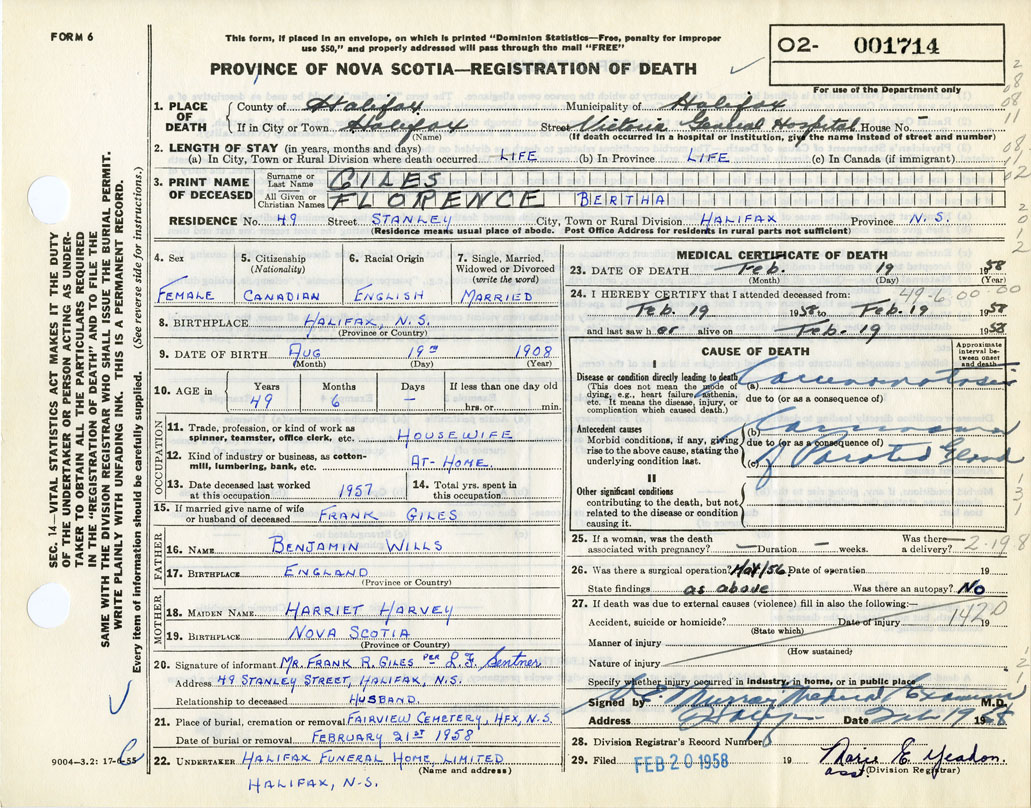 FORM 6
This form, if placed in an envelope, on which is printed "Dominion Statistics—Free, penalty for improper
use $50," and properly addressed will pass through the mail "FREE"
PROVINCE OF NOVA SCOTIA—REGISTRATION OF DEATH
02- 001714
For use of the Department only
1. PLACE OF DEATH
County of Halifax Municipality of Halifax
If in City or Town Halifax Street Victoria General Hospital House No. -
(Name) (If death occurred in a hospital or institution, give the name instead of street and number)
2. LENGTH OF STAY (in years, months and days)
(a) In City, Town or Rural Division where death occurred LIFE (b) In Province LIFE (c) In Canada (if immigrant)
3. PRINT NAME OF DECEASED
Surname or Last Name GILES
All Given or Christian Names FLORENCE BERTHA
RESIDENCE No. 49 Street STANLEY City, Town or Rural Division HALIFAX Province N.S.
(Residence means usual place of abode. Post Office Address for residents in rural parts not sufficient)
4. Sex
FEMALE
5. Citizenship
(Nationality)
CANADIAN
6. Racial Origin
ENGLISH
7. Single, Married,
Widowed or Divorced
(write the word)
MARRIED
8. BIRTHPLACE HALIFAX, N.S.
(Province or Country)
9. DATE OF BIRTH AUG 19TH 1908
(Month) (Day) (Year)
10. AGE in
Years Months Days If less than one day old
49 6 – hrs. or min.
OCCUPATION
11. Trade, profession, or kind of work as
spinner, teamster, office clerk, etc. HOUSEWIFE
12. Kind of industry or business, as cotton-
mill, lumbering, bank, etc. AT-HOME.
13. Date deceased last worked
at this occupation 1957
14. Total yrs. spent in
this occupation
15. If married give name of wife
or husband of deceased FRANK GILES
FATHER
16. NAME BENJAMIN WILLS
17. BIRTHPLACE ENGLAND
(Province or Country)
MOTHER
18. MAIDEN NAME HARRIET HARVEY
19. BIRTHPLACE NOVA SCOTIA
(Province or Country)
20. Signature of informant MR. FRANK R. GILES PER L.F. Sentner
Address 49 STANLEY STREET, HALIFAX, N.S.
Relationship to deceased HUSBAND.
21. Place of burial, cremation or removal FAIRVIEW CEMETERY, HFX, N.S.
Date of burial or removal FEBRUARY 21ST 1958
22. UNDERTAKER HALIFAX FUNERAL HOME, LIMITED
(Name and address)
HALIFAX, N.S.
9004-3.2: 17-6-55
MEDICAL CERTIFICATE OF DEATH
23. DATE OF DEATH Feb. 19 1958
(Month) (Day) (Year)
24. I HEREBY CERTIFY that I attended deceased from: 49-6 00 00
Feb. 19 1958 to Feb. 19 1958
and last saw her alive on Feb. 19 1958
CAUSE OF DEATH
Approximate interval between onset and death
I
Disease or condition directly leading to death
(This does not mean the mode of
dying, e.g., heart failure, asthenia,
etc. It means the disease, injury, or
complication which caused death.)
(a) Carcinomatosis
due to (or as a consequence of)
Antecedent causes
Morbid conditions, if any, giving
rise to the above cause, stating the
underlying condition last.
(b) Carcinoma
due to (or as a consequence of)
(c) of Parotid Gland
II
Other significant conditions
contributing to the death, but not
related to the disease or condition
causing it.
25. If a woman, was the death
associated with pregnancy? – Duration – weeks. Was there a delivery? – 2-198
26. Was there a surgical operation? Date of operation 19
State findings as above Was there an autopsy? No
27. If death was due to external causes (violence) fill in also the following:—
Accident, suicide or homicide? Date of injury 19 142.0
(State which)
Manner of injury
(How sustained)
Nature of injury
Specify whether injury occurred in industry, in home, or in public place
Signed by Murray Medical Examiner M.D.
Address Halifax Date Feb 19 1958
28. Division Registrar's Record Number
29. Filed FEB 20 1958 19 Marie E. Yeadon.
asst. (Division Registrar)
SEC. 14—VITAL STATISTICS ACT MAKES IT THE DUTY
OF THE UNDERTAKER OR PERSON ACTING AS UNDER-
TAKER TO OBTAIN ALL THE PARTICULARS REQUIRED
IN THE "REGISTRATION OF DEATH" AND TO FILE THE
SAME WITH THE DIVISION REGISTRAR WHO SHALL ISSUE THE BURIAL PERMIT.
WRITE PLAINLY WITH UNFADING INK. THIS IS A PERMANENT RECORD.
Every item of information should be carefully supplied. (See reverse side for instructions.)